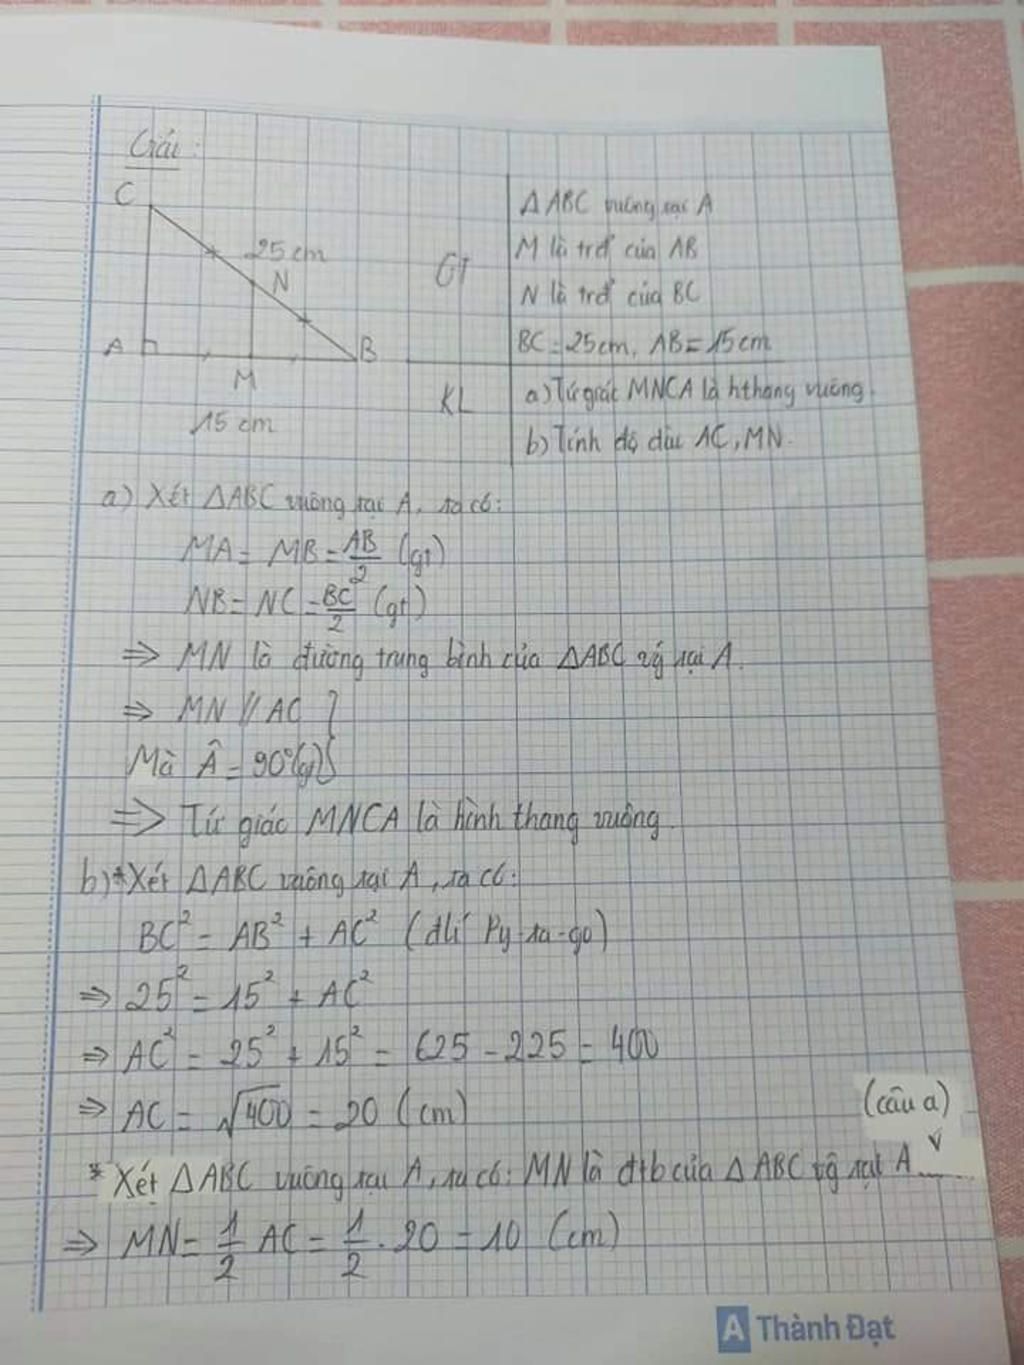 Giải:
C
25 cm
N
A
B
M
15 cm
GT
Δ ABC vuông tại A
M là trđ của AB
N là trđ của BC
BC = 25cm, AB = 15cm
KL
a) Tứ giác MNCA là hthang vuông.
b) Tính độ dài AC, MN.
a) Xét ΔABC vuông tại A, ta có:
MA = MB = AB/2 (gt)
NB = NC = BC/2 (gt)
⇒ MN là đường trung bình của ΔABC vg tại A.
⇒ MN // AC }
Mà Â = 90° (gt) }
⇒ Tứ giác MNCA là hình thang vuông.
b) * Xét ΔABC vuông tại A, ta có:
BC² = AB² + AC² (đlí Py-ta-go)
⇒ 25² = 15² + AC²
⇒ AC² = 25² + 15² = 625 - 225 = 400
⇒ AC = √400 = 20 (cm)
(câu a)
* Xét ΔABC vuông tại A, ta có: MN là đtb của Δ ABC vg tại A
⇒ MN = 1/2 AC = 1/2 . 20 = 10 (cm)
A Thành Đạt